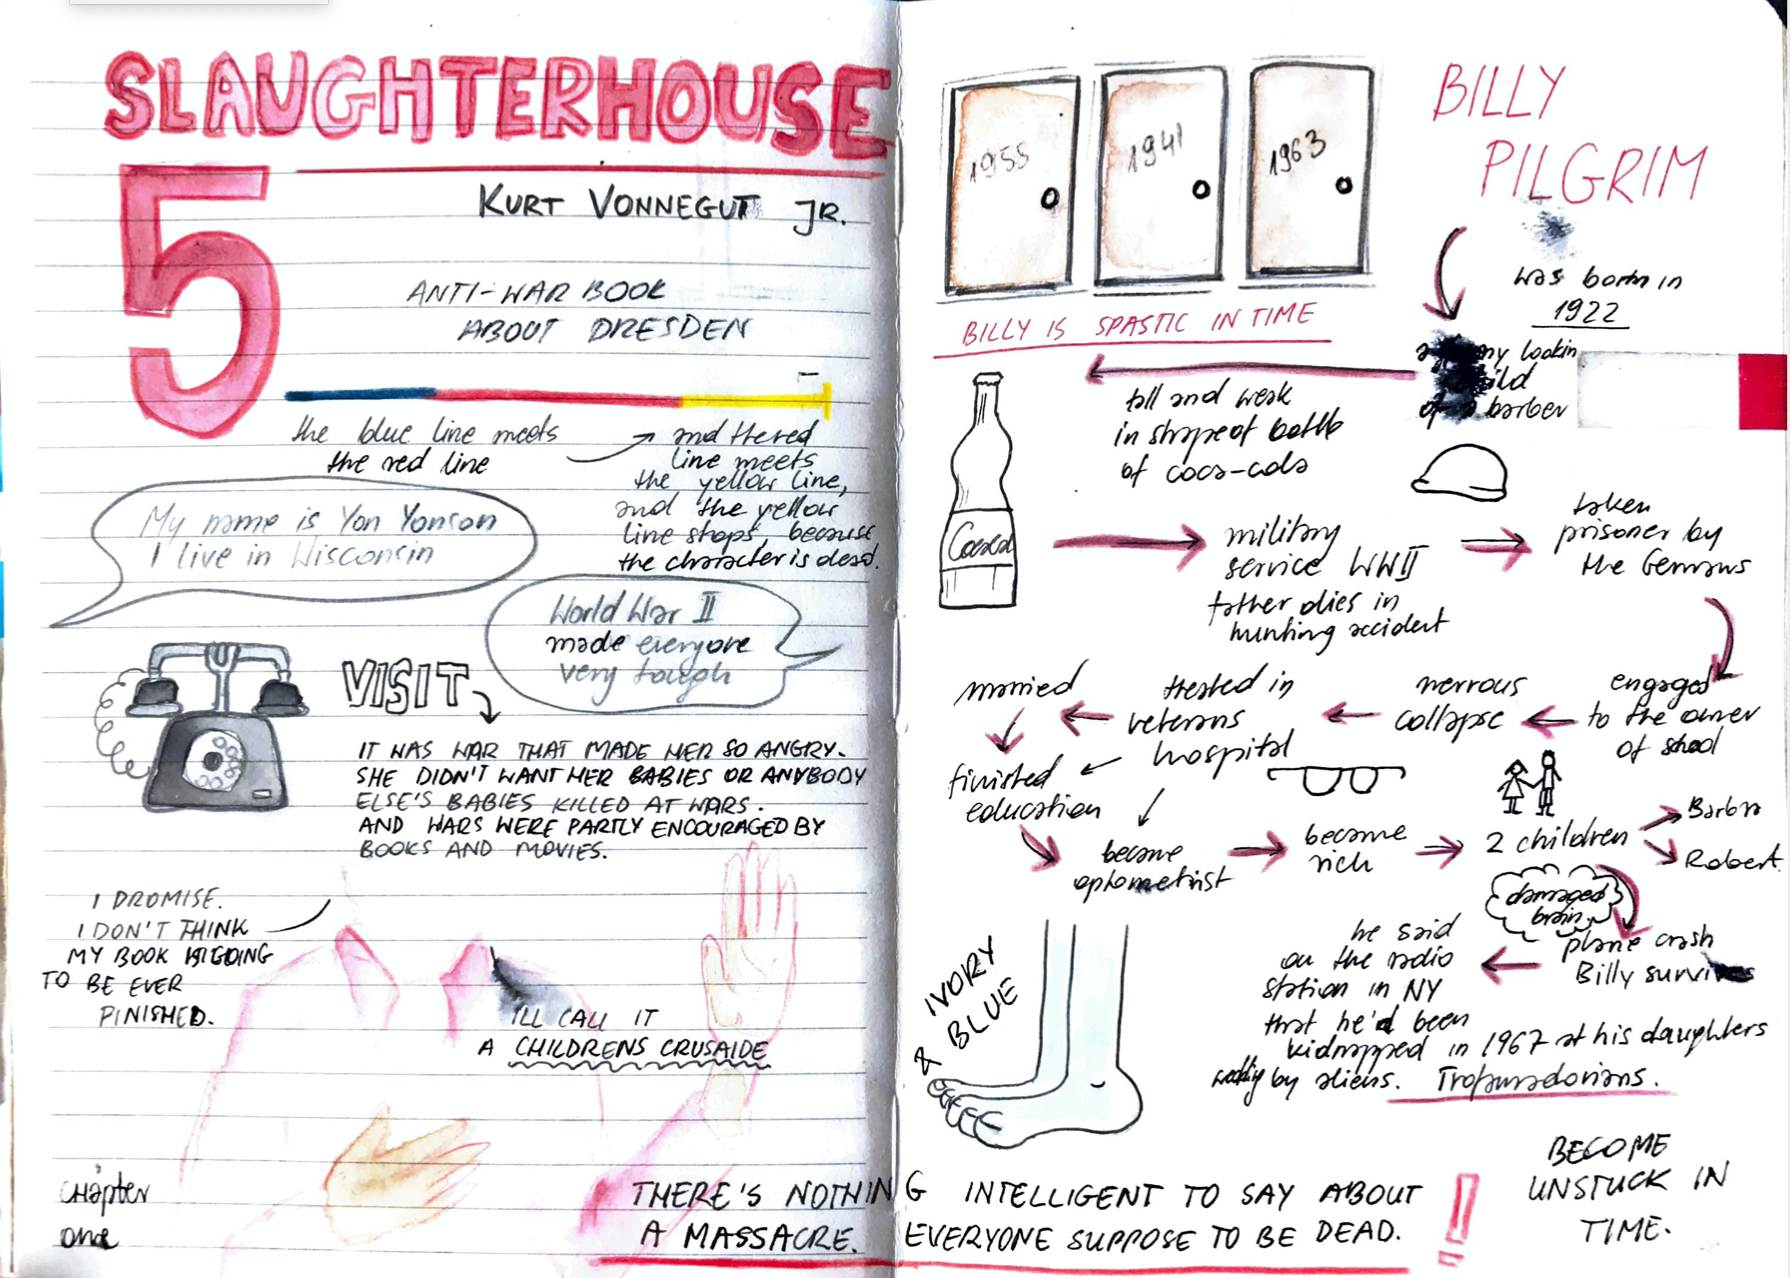 SLAUGHTERHOUSE
5
KURT VONNEGUT JR.
ANTI-WAR BOOK
ABOUT DRESDEN
the blue line meets
the red line
and the red
line meets
the yellow line,
and the yellow
line stops, because
the character is dead.
My name is Yon Yonson
I live in Wisconsin
World War II
made everyone
very tough
VISIT
IT WAS WAR THAT MADE HER SO ANGRY.
SHE DIDN'T WANT HER BABIES OR ANYBODY
ELSE'S BABIES KILLED AT WARS.
AND WARS WERE PARTLY ENCOURAGED BY
BOOKS AND MOVIES.
I PROMISE.
I DON'T THINK
MY BOOK IS GOING
TO BE EVER
FINISHED.
I'LL CALL IT
A CHILDRENS CRUSAIDE
chapter
one
THERE'S NOTHING INTELLIGENT TO SAY ABOUT
A MASSACRE. EVERYONE SUPPOSE TO BE DEAD.
1955
1941
1963
BILLY IS SPASTIC IN TIME
BILLY
PILGRIM
was born in
1922
lookin
of a barber
tall and weak
in shape of bottle
of coca-cola
military
service WWII
father dies in
hunting accident
taken
prisoner by
the Germans
engaged
to the owner
of
nervous
collapse
treated in
veterans
hospital
married
finished
education
became
optometrist
became
rich
2 children
Barbra
Robert
damaged
brain
plane crash
Billy survives
he said
on the radio
station in NY
that he'd been
kidnapped in 1967 at his daughters
by aliens. Tralfamadorians.
IVORY
& BLUE
BECOME
UNSTUCK IN
TIME.